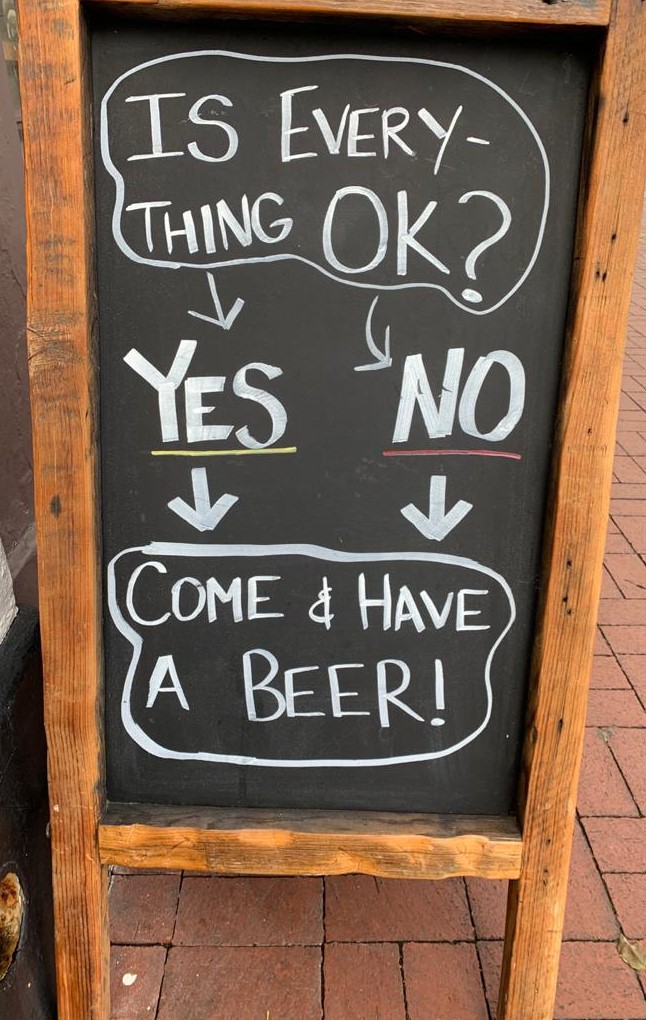 IS EVERY-
THING OK?
YES NO
COME & HAVE
A BEER!